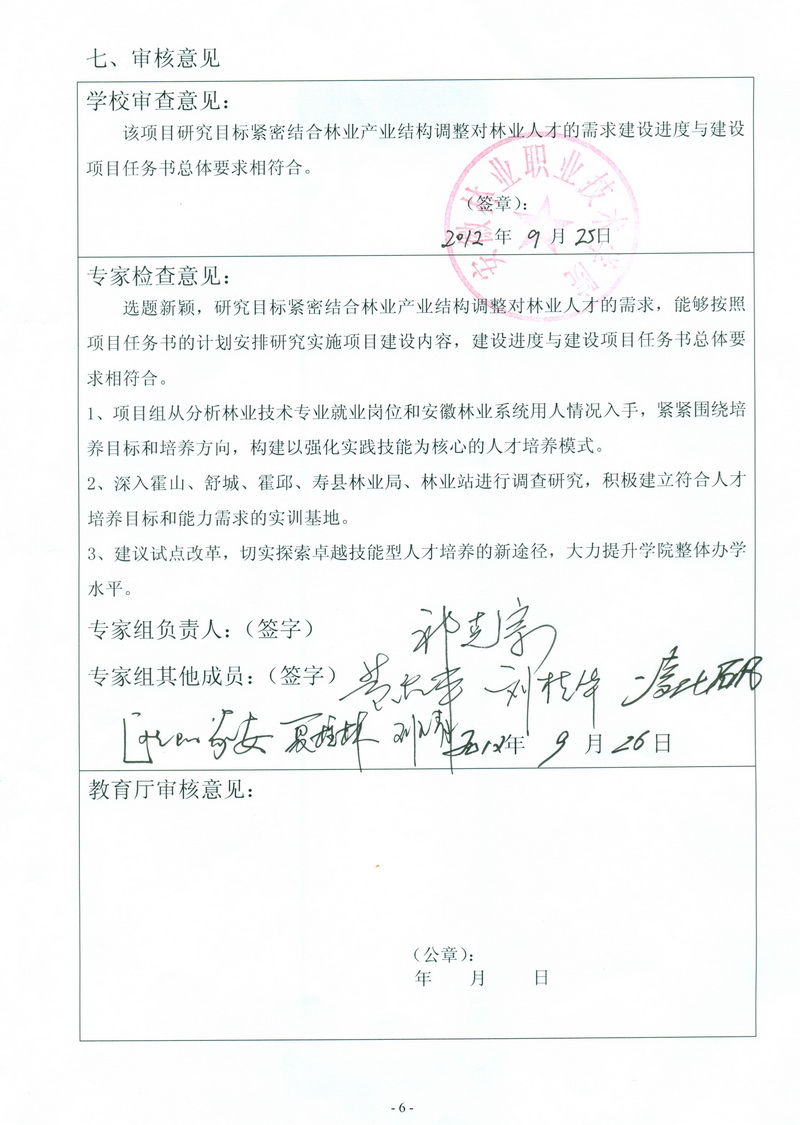 七、审核意见
学校审查意见：
该项目研究目标紧密结合林业产业结构调整对林业人才的需求建设进度与建设
项目任务书总体要求相符合。
安徽林业职业技术学院
（签章）：
2012 年 9 月 25日
专家检查意见：
选题新颖，研究目标紧密结合林业产业结构调整对林业人才的需求，能够按照
项目任务书的计划安排研究实施项目建设内容，建设进度与建设项目任务书总体要
求相符合。
1、项目组从分析林业技术专业就业岗位和安徽林业系统用人情况入手，紧紧围绕培
养目标和培养方向，构建以强化实践技能为核心的人才培养模式。
2、深入霍山、舒城、霍邱、寿县林业局、林业站进行调查研究，积极建立符合人才
培养目标和能力需求的实训基地。
3、建议试点改革，切实探索卓越技能型人才培养的新途径，大力提升学院整体办学
水平。
专家组负责人：（签字）
专家组其他成员：（签字） 刘桂华
夏桂林 2012年 9 月 26 日
教育厅审核意见：
（公章）：
年 月 日
- 6 -